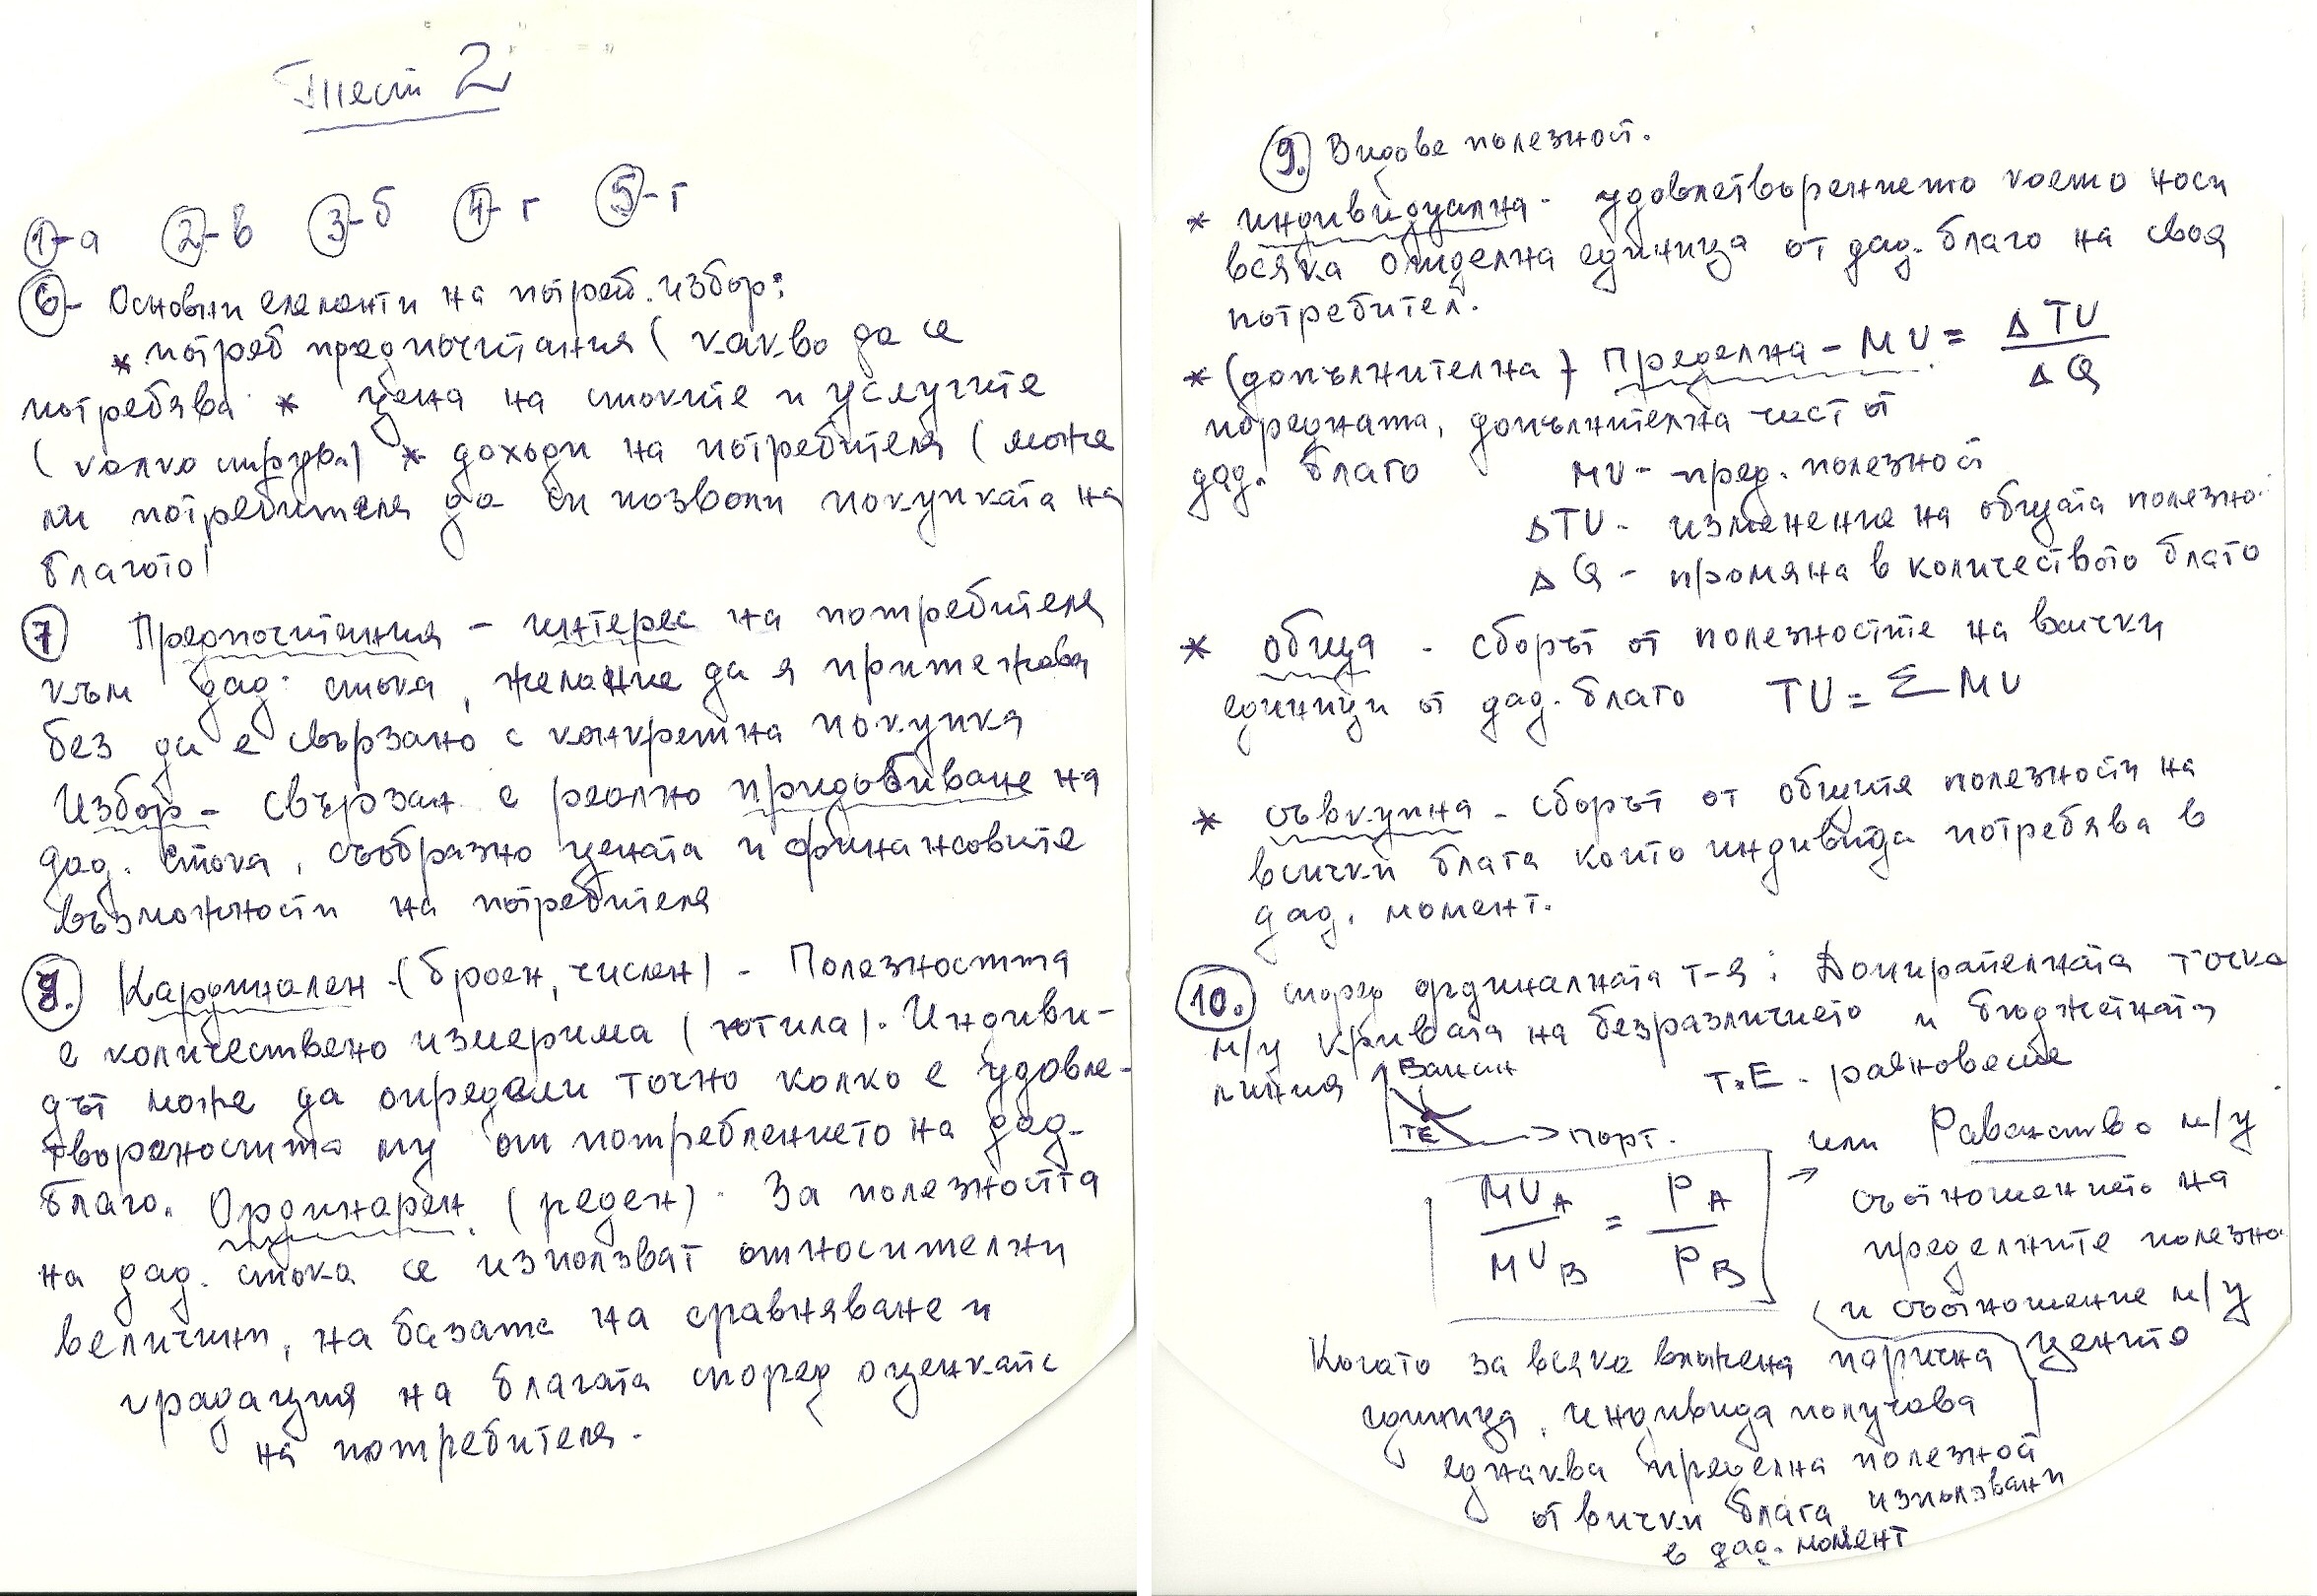 Тест 2
1-а 2-в 3-б 4-г 5-г
6- Основни елементи на потреб. избор:
* потреб предпочитания (какво да се
потребява * цена на стоките и услугите
(колко струва) * доходи на потребителя (може
ли потребителя да си позволи покупката на
благото)
7 Предпочитания - интерес на потребителя
към дад. стока, желание да я притежава
без да е свързано с конкретна покупка
Избор - свързан с реално придобиване на
дад. стока, съобразно цената и финансовите
възможности на потребителя
8. Кардинален - (броен, числен) - Полезността
е количествено измерима (ютила). Индиви-
дът може да определи точно колко е удовле-
твореността му от потреблението на дад.
благо. Ординарен (реден). За полезността
на дад. стока се използват относителни
величини, на базата на сравняване и
градация на благата според оценката
на потребителя.
9. Видове полезност.
* индивидуална - удовлетворението което носи
всяка отделна единица от дад. благо на своя
потребител.
* (допълнителна) Пределна - MU = ΔTU / ΔQ
поредната, допълнителна част от
дад. благо MU - пред. полезност
ΔTU - изменение на общата полезно
ΔQ - промяна в количеството благо
* обща - сборът от полезностите на всички
единици от дад. благо TU = Σ MU
* съвкупна - сборът от общите полезности на
всички блага които индивида потребява в
дад. момент.
10. според ординалната т-я: Допирателната точка
м/у кривата на безразличието и бюджетната
линия Банан т.Е - равновесие
ТЕ порт.
или Равенство м/у
MUA / MUB = PA / PB
съотношението на
пределните полезно
и съотношение м/у
цените
Когато за всяка вложена парична
единица, индивида получава
еднаква пределна полезност
от вички блага, използвани
в дад. момент